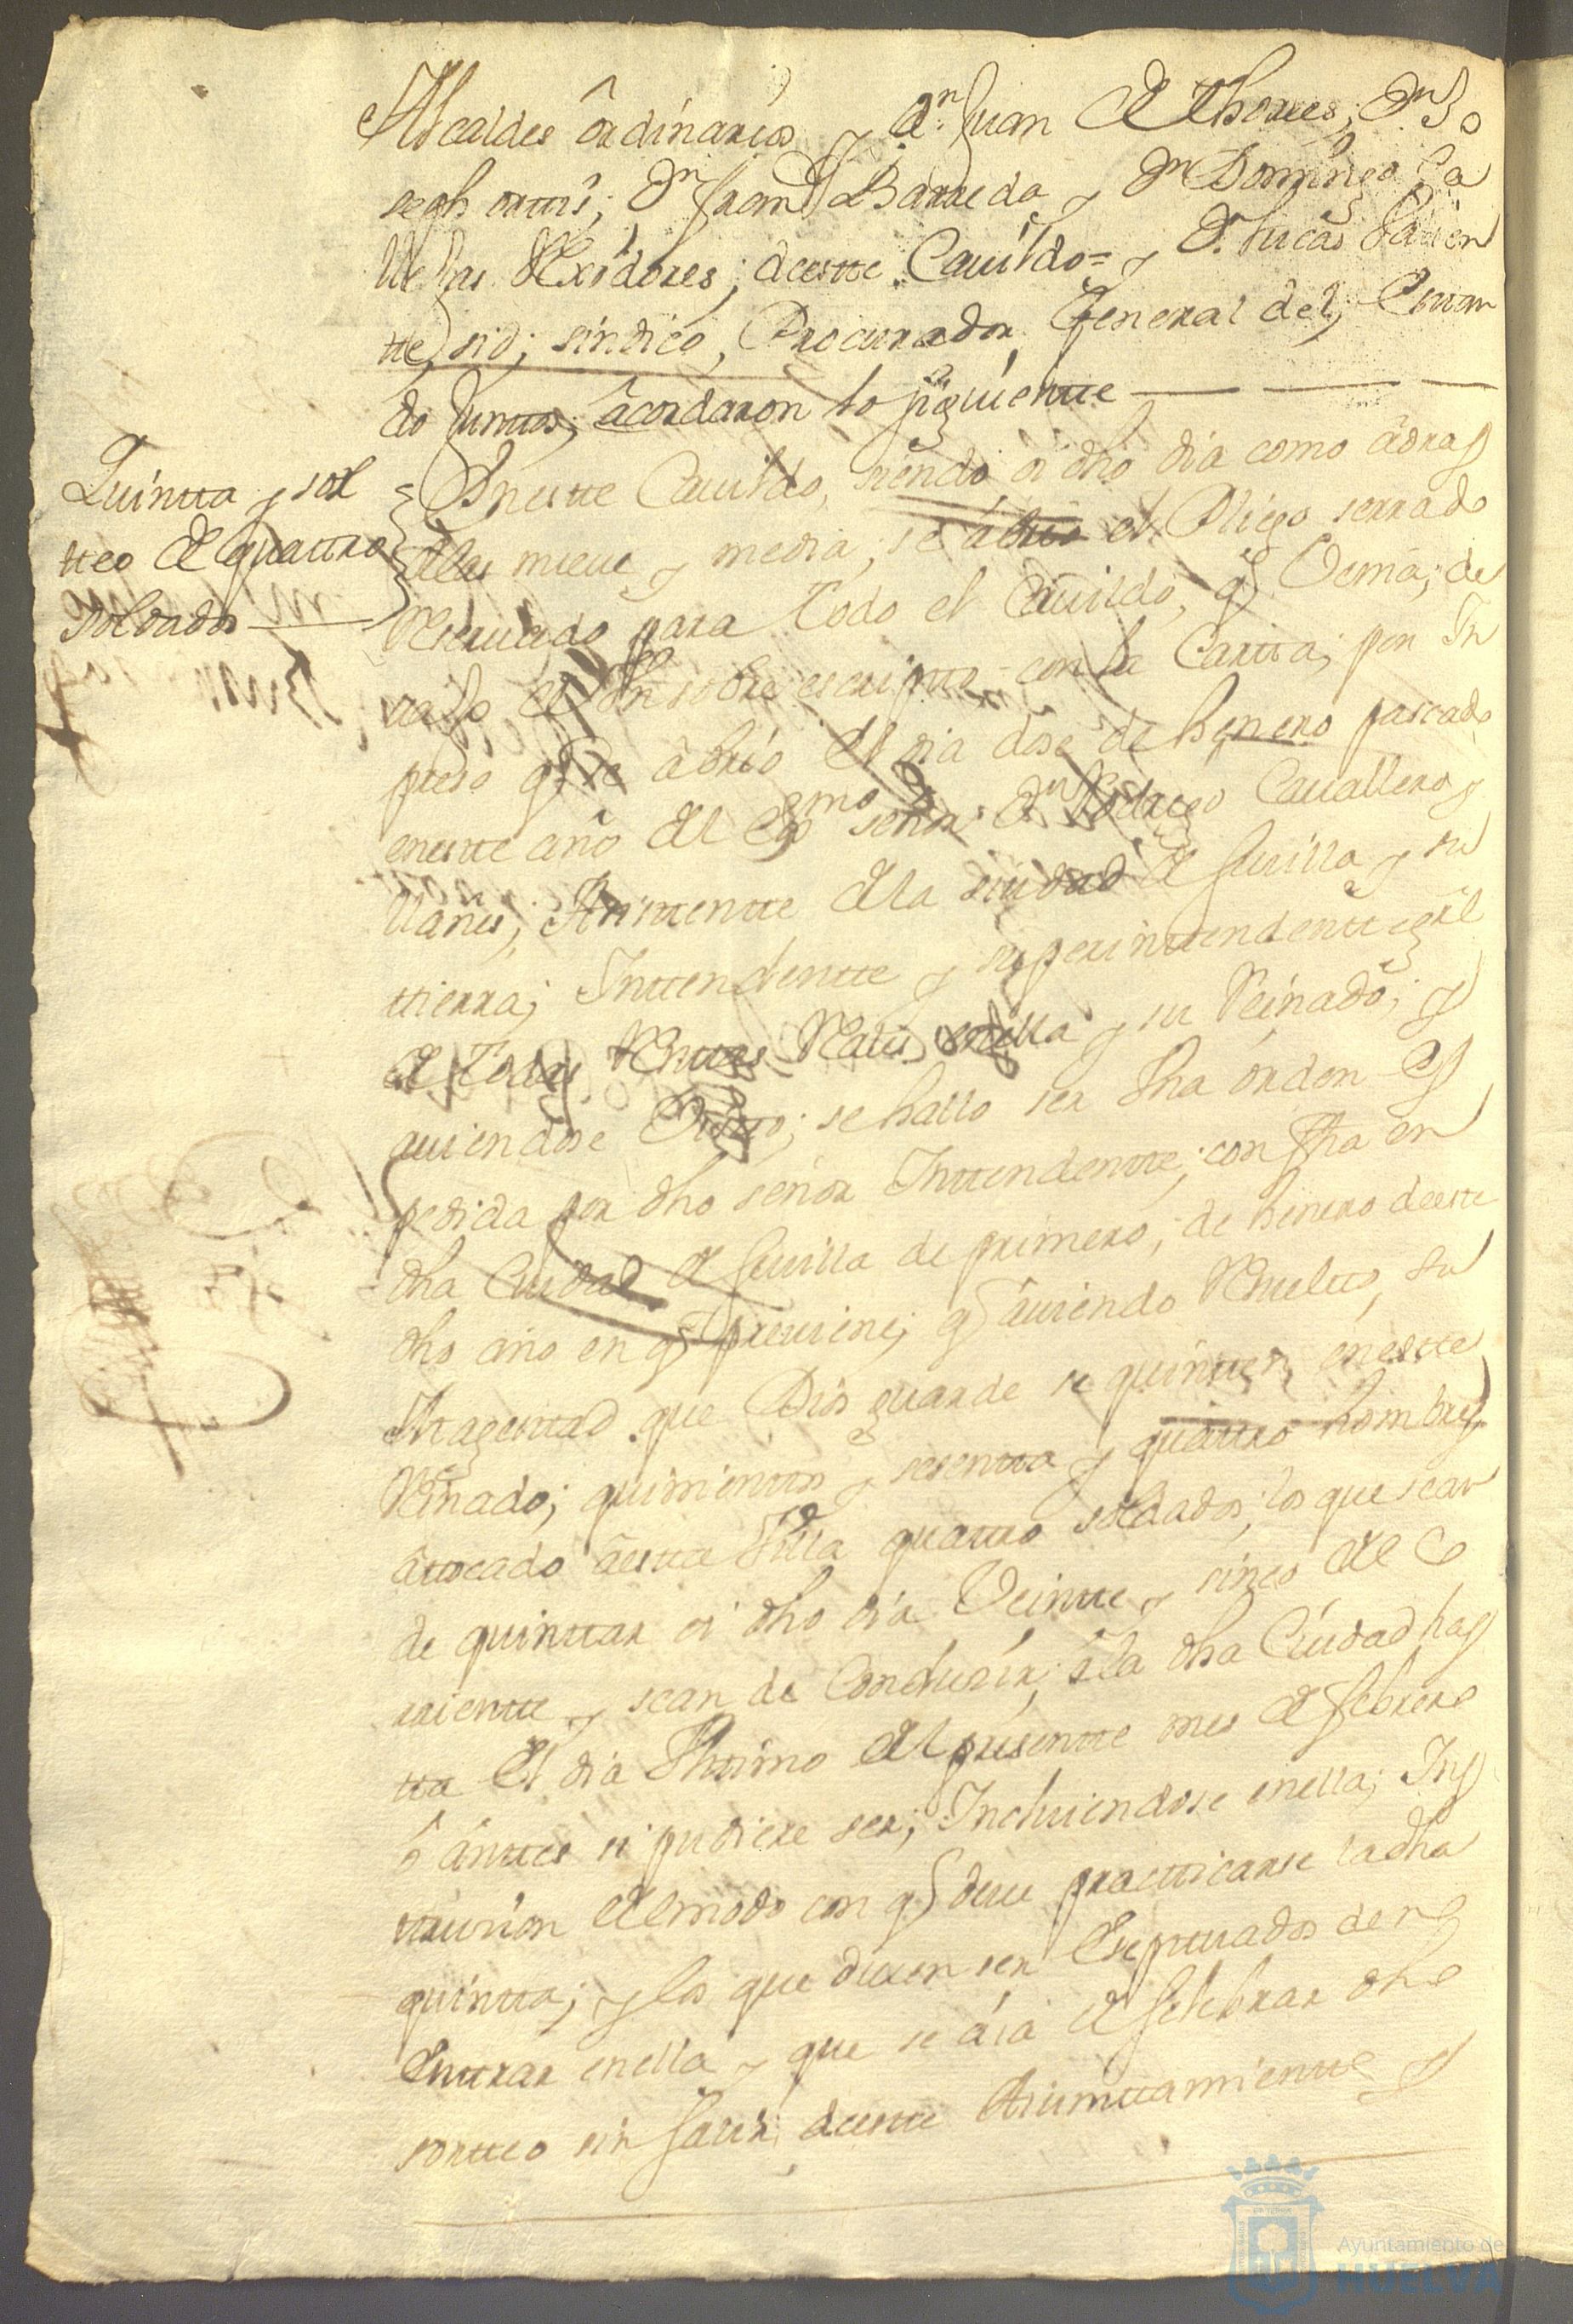 Alcaldes ôrdinarios y Dn Juan de thorres; Dn Jo
seph ortis; Dn Franco Barreda y Dn Domingo Ca
Rexidores; deestte Cavildo = y Dn Lucas
sindico, Procurador General del; Esttan
do Junttos; âcordaron lo siguientte
Quintta y sor
tteo de quattro
soldados
= Enestte Cavildo, siendo oi dho dia como âoras
delas nueve y media, se âbrio el Pliego serrado
Reservado para todo el Cavildo, q Venia; de
vajo del sobre escripto con la Cartta; por Im
preso q se âbrio el dia dose de henero passado
enestte año del Exmo señor Dn Rodrigo Cavallero y
llanes; Asisttentte dela siudad de sevilla y su
ttierra; Inttendentte y superinttendentte gral
de todas Rentas Reales della y su Reinado; y
aviendose Visto; se hallo ser Una órden Es
pedida por dho señor Inttendentte; con fha en
dha Ciudad de sevilla de primero; de henero deeste
dho año en q previene; q âviendo Resuelto, su
Magesttad que Dios guarde se quintten, enestte
Reinado; quinienttos y sesentta y quattro hombres
âtocado âestta Villa quattro soldados; los que se an
de quinttar oi dho dia Veintte y sinco del Co
rrientte y se an de Condusir; âla dha Ciudad has
tta el dia Ulttimo del presentte mes de febrero
ô ânttes si pudiere ser; Incluiendose enella; Ins
trusion del modo con q deve practticarse la dha
quintta; y los que deven ser Eseptuados de no
Enttrar enella y que se áia de selebrar dho
sortteo sin salir; deestte Aiunttamientto y
Ayuntamiento de
HUELVA